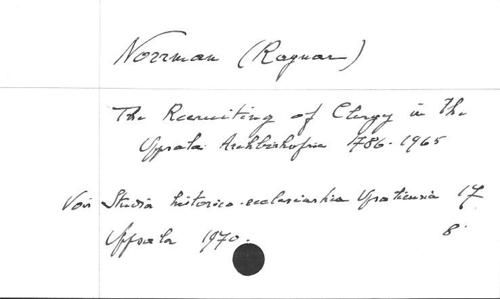 Norrman (Ragnar)
The Recruiting of Clergy in the
Uppsala Archbishopric 1786-1965
Voir Studia historico-ecclesiastica Upsaliensia 17
Uppsala 1970. 8°